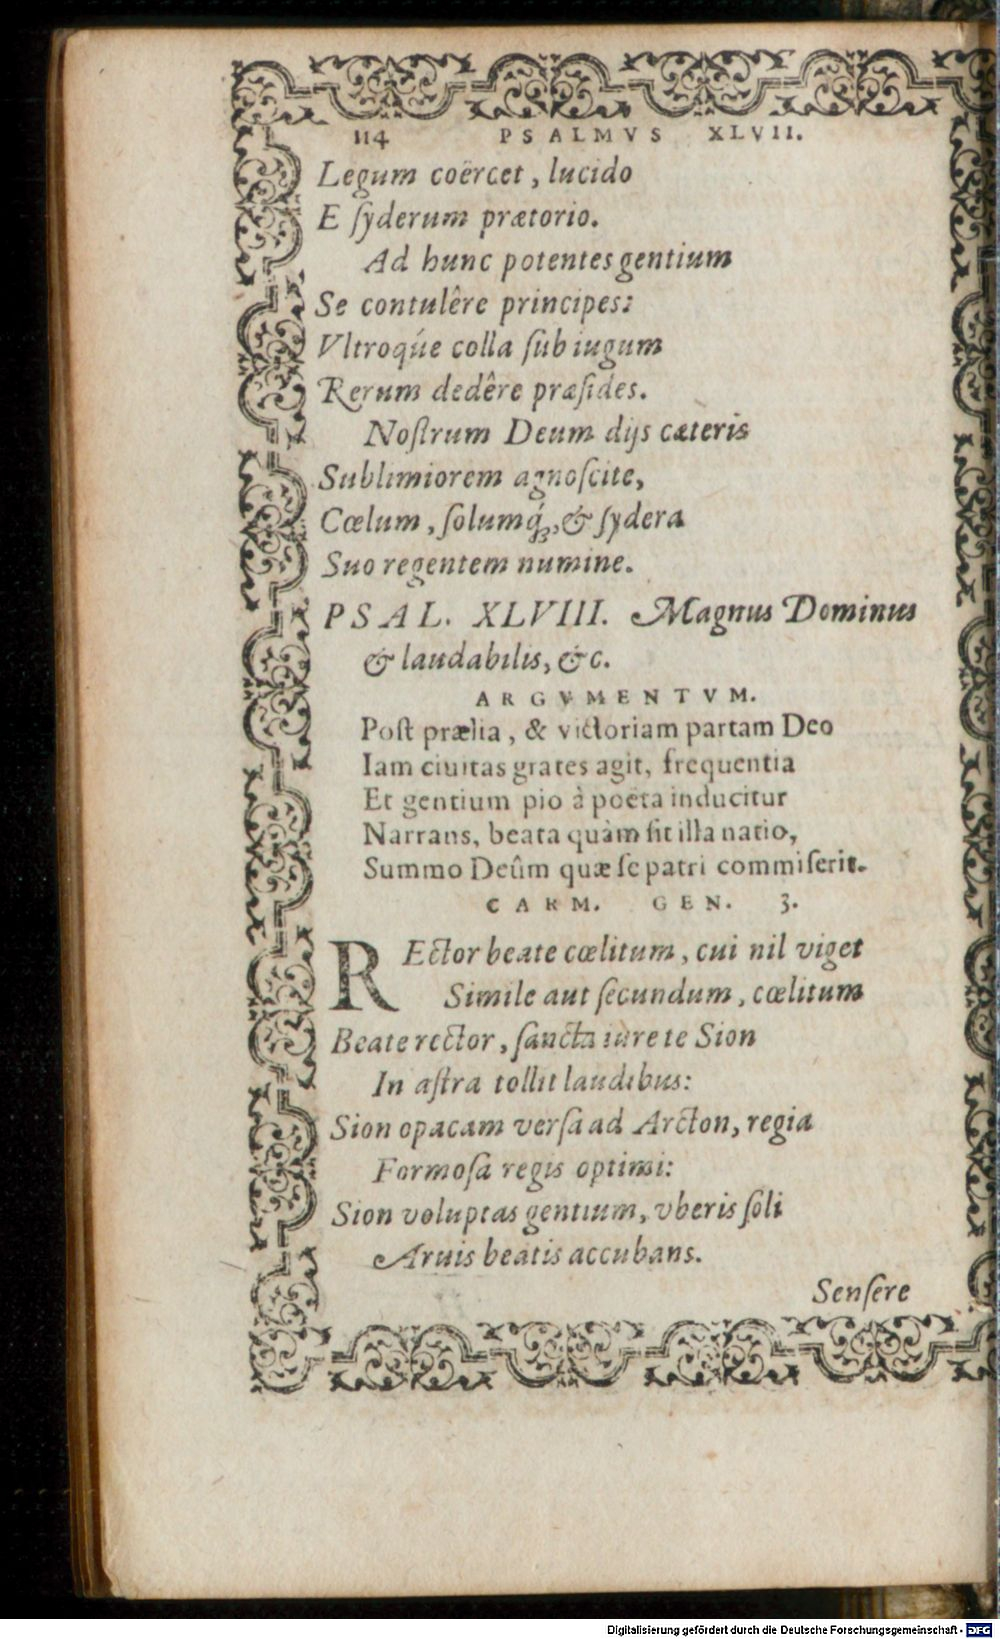 114 PSALMVS XLVII.
Legum coërcet, lucido
E ſyderum prætorio.
Ad hunc potentes gentium
Se contulêre principes:
Vltroqúe colla ſub iugum
Rerum dedêre præſides.
Noſtrum Deum dijs cæteris
Sublimiorem agnoſcite,
Cœlum, ſolumq́;, & ſydera
Suo regentem numine.
PSAL. XLVIII. Magnus Dominus
& laudabilis, &c.
ARGVMENTVM.
Poſt prælia, & victoriam partam Deo
Iam ciuitas grates agit, frequentia
Et gentium pio à poëta inducitur
Narrans, beata quàm ſit illa natio,
Summo Deûm quæ ſe patri commiſerit.
CARM. GEN. 3.
REctor beate cœlitum, cui nil viget
Simile aut ſecundum, cœlitum
Beate rector, ſancta iure te Sion
In aſtra tollit laudibus:
Sion opacam verſa ad Arcton, regia
Formoſa regis optimi:
Sion voluptas gentium, vberis ſoli
Aruis beatis accubans.
Senſere
Digitalisierung gefördert durch die Deutsche Forschungsgemeinschaft - DFG